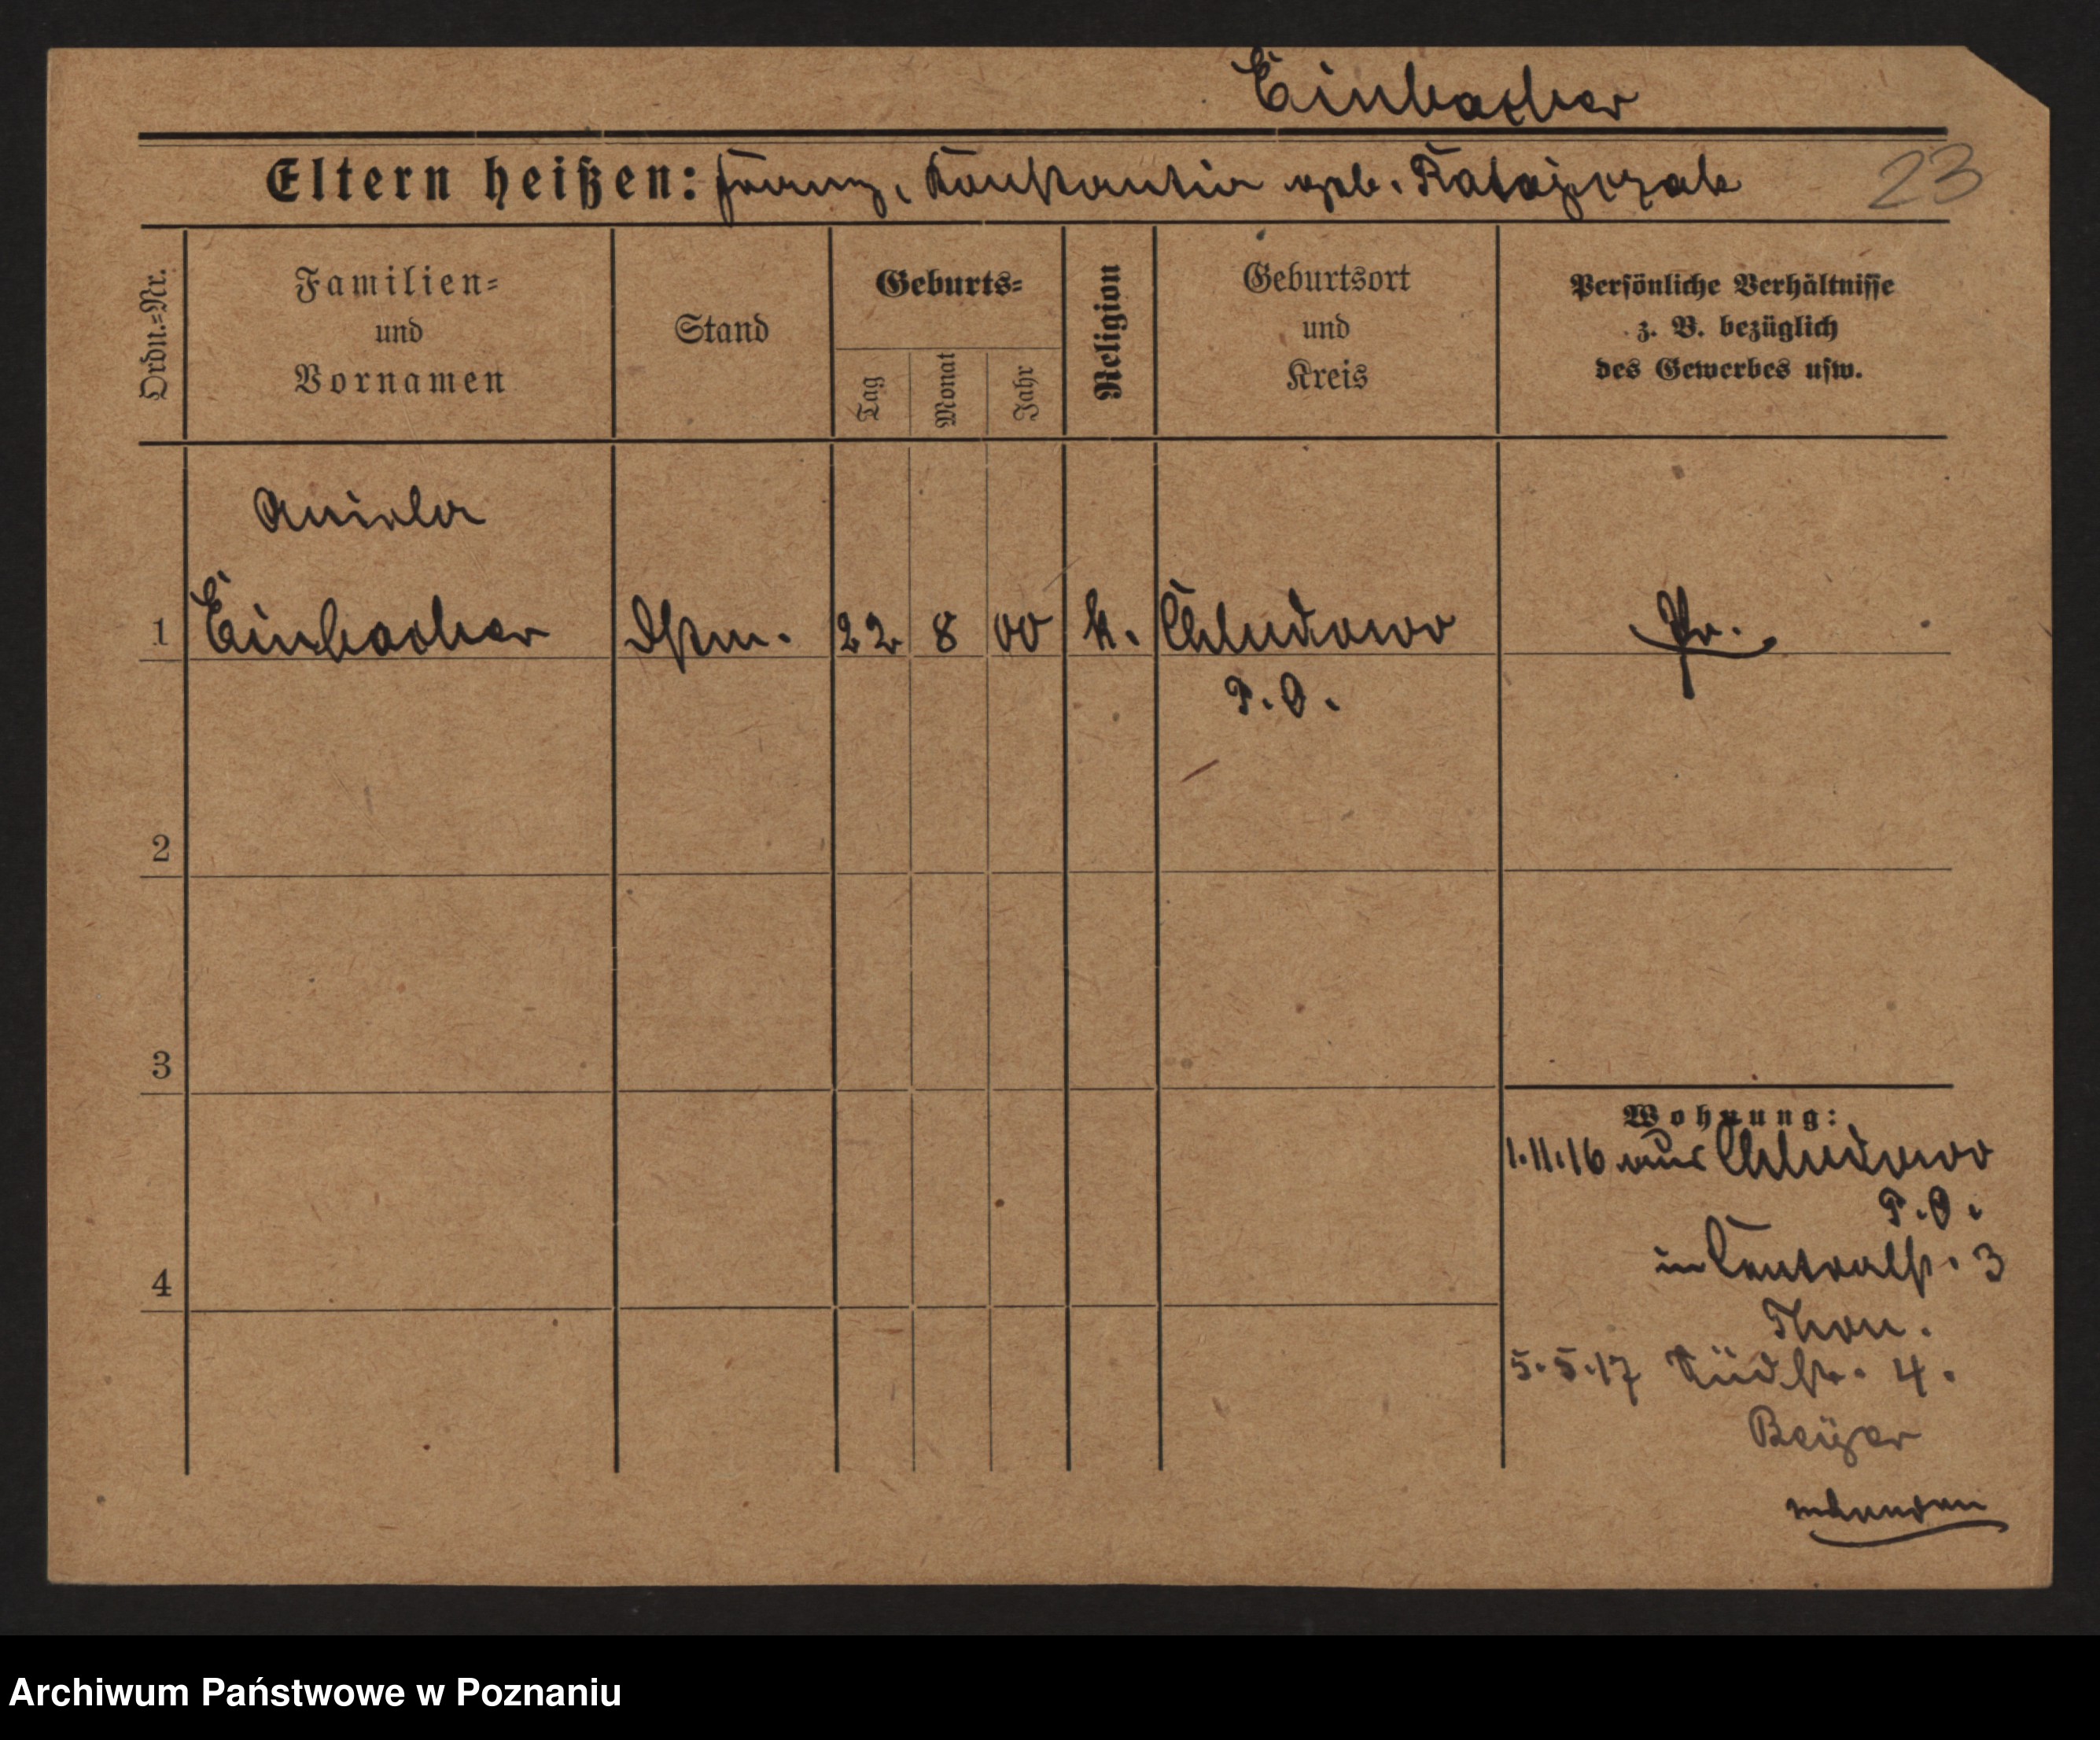 Einbacher
Eltern heißen: Franz, Konstantia geb. Katajczak
23
Ordn.=Nr.
Familien=
und
Vornamen
Stand
Geburts=
Tag
Monat
Jahr
Religion
Geburtsort
und
Kreis
Persönliche Verhältnisse
z. B. bezüglich
des Gewerbes usw.
Aniela
1 Einbacher Dstm. 22 8 00 k. Chludowo Pr.
P.O.
2
3
4
Wohnung:
1.11.16 aus Chludowo
P.O.
in Centralstr. 3
Thon.
5.5.17 Südstr. 4.
Beyer
Archiwum Państwowe w Poznaniu